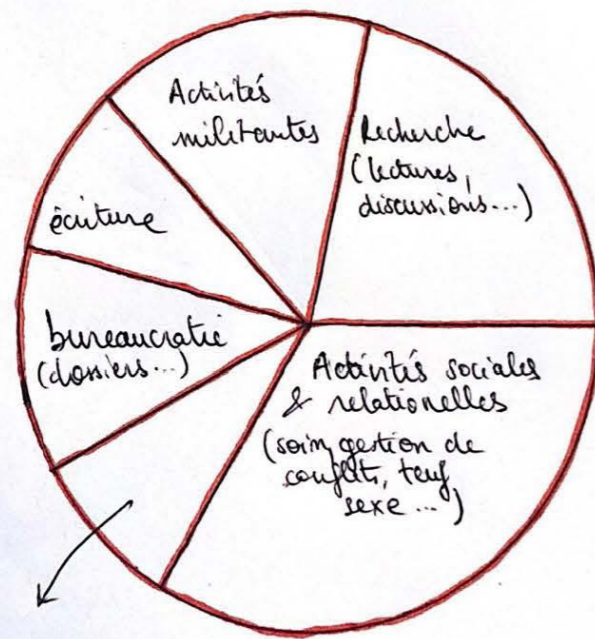 Activités
militantes
Recherche
(lectures,
discussions...)
écriture
bureaucratie
(dossiers...)
Activités sociales
& relationelles
(soin, gestion de
conflits, teuf,
sexe ...)